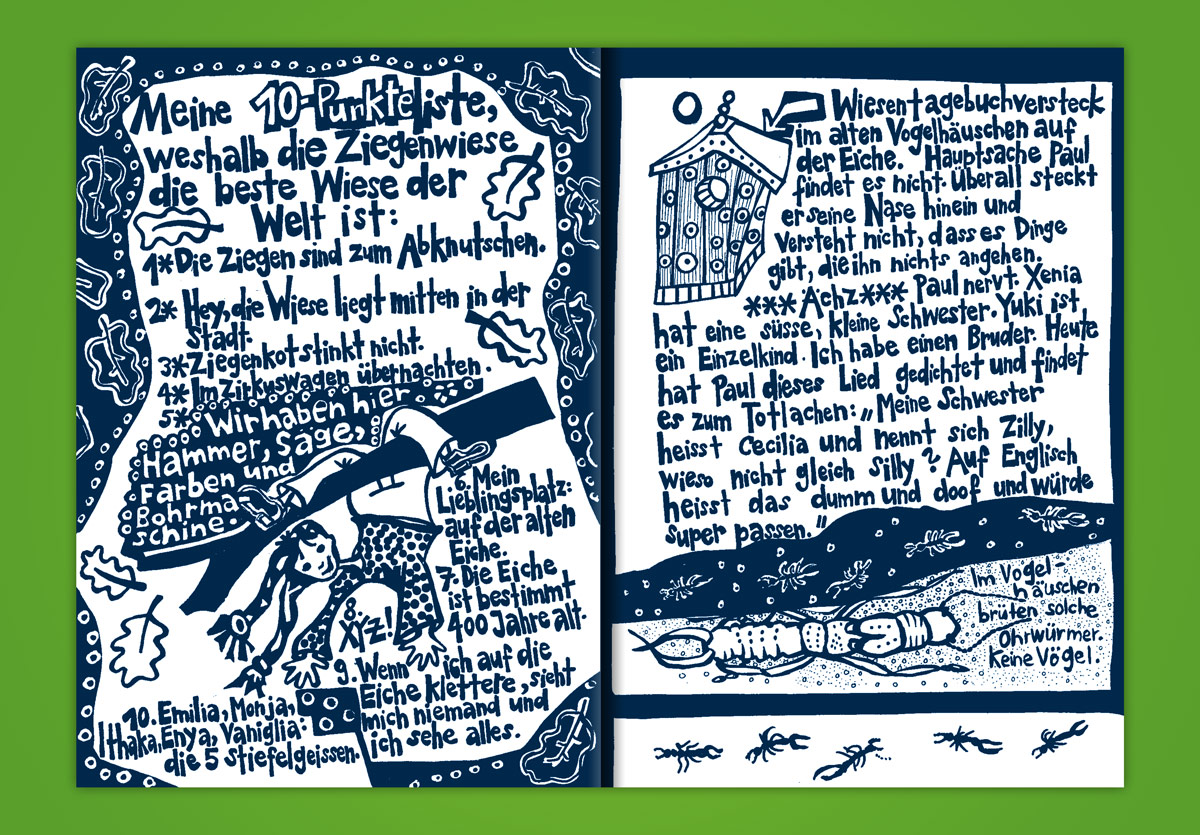 Meine 10-Punkteliste,
weshalb die Ziegenwiese
die beste Wiese der
Welt ist:
1* Die Ziegen sind zum Abknutschen.
2* Hey, die Wiese liegt mitten in der
Stadt.
3* Ziegenkot stinkt nicht.
4* Im Zirkuswagen übernachten.
5* Wir haben hier
Hammer, Säge,
Farben und
Bohrma
schine.
6. Mein
Lieblingsplatz:
auf der alten
Eiche.
7. Die Eiche
ist bestimmt
400 Jahre alt.
8.
XYZ!
9. Wenn ich auf die
Eiche klettere, sieht
mich niemand und
ich sehe alles.
10. Emilia, Monja,
Ithaka, Enya, Vaniglia:
die 5 Stiefelgeissen.
Wiesentagebuchversteck
im alten Vogelhäuschen auf
der Eiche. Hauptsache Paul
findet es nicht. Überall steckt
er seine Nase hinein und
versteht nicht, dass es Dinge
gibt, die ihn nichts angehen.
*** Achz *** Paul nervt. Xenia
hat eine süsse, kleine Schwester. Yuki ist
ein Einzelkind. Ich habe einen Bruder. Heute
hat Paul dieses Lied gedichtet und findet
es zum Totlachen: „Meine Schwester
heisst Cecilia und nennt sich Zilly,
wieso nicht gleich Silly? Auf Englisch
heisst das dumm und doof und würde
super passen."
Im Vogel-
häuschen
brüten solche
Ohrwürmer.
Keine Vögel.